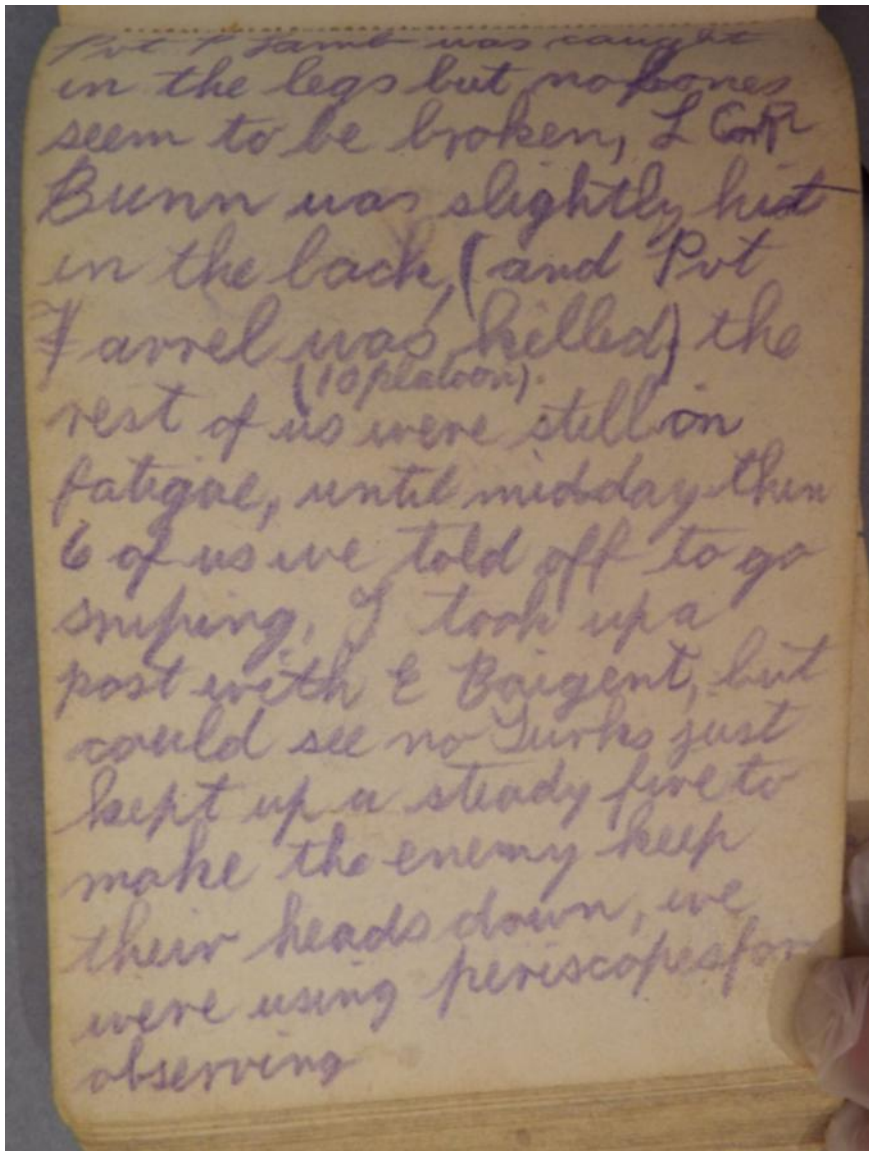 Pvt P Lamb was caught
in the legs but no bones
seem to be broken, L Corp
Bunn was slightly hit
in the back, (and Pvt
Farrel was killed) the
(10 platoon).
rest of us were still on
fatigue, until midday then
6 of us we told off to go
sniping, I took up a
post with E Baigent, but
could see no Turks just
kept up a steady fire to
make the enemy keep
their heads down, we
were using periscopes for
observing